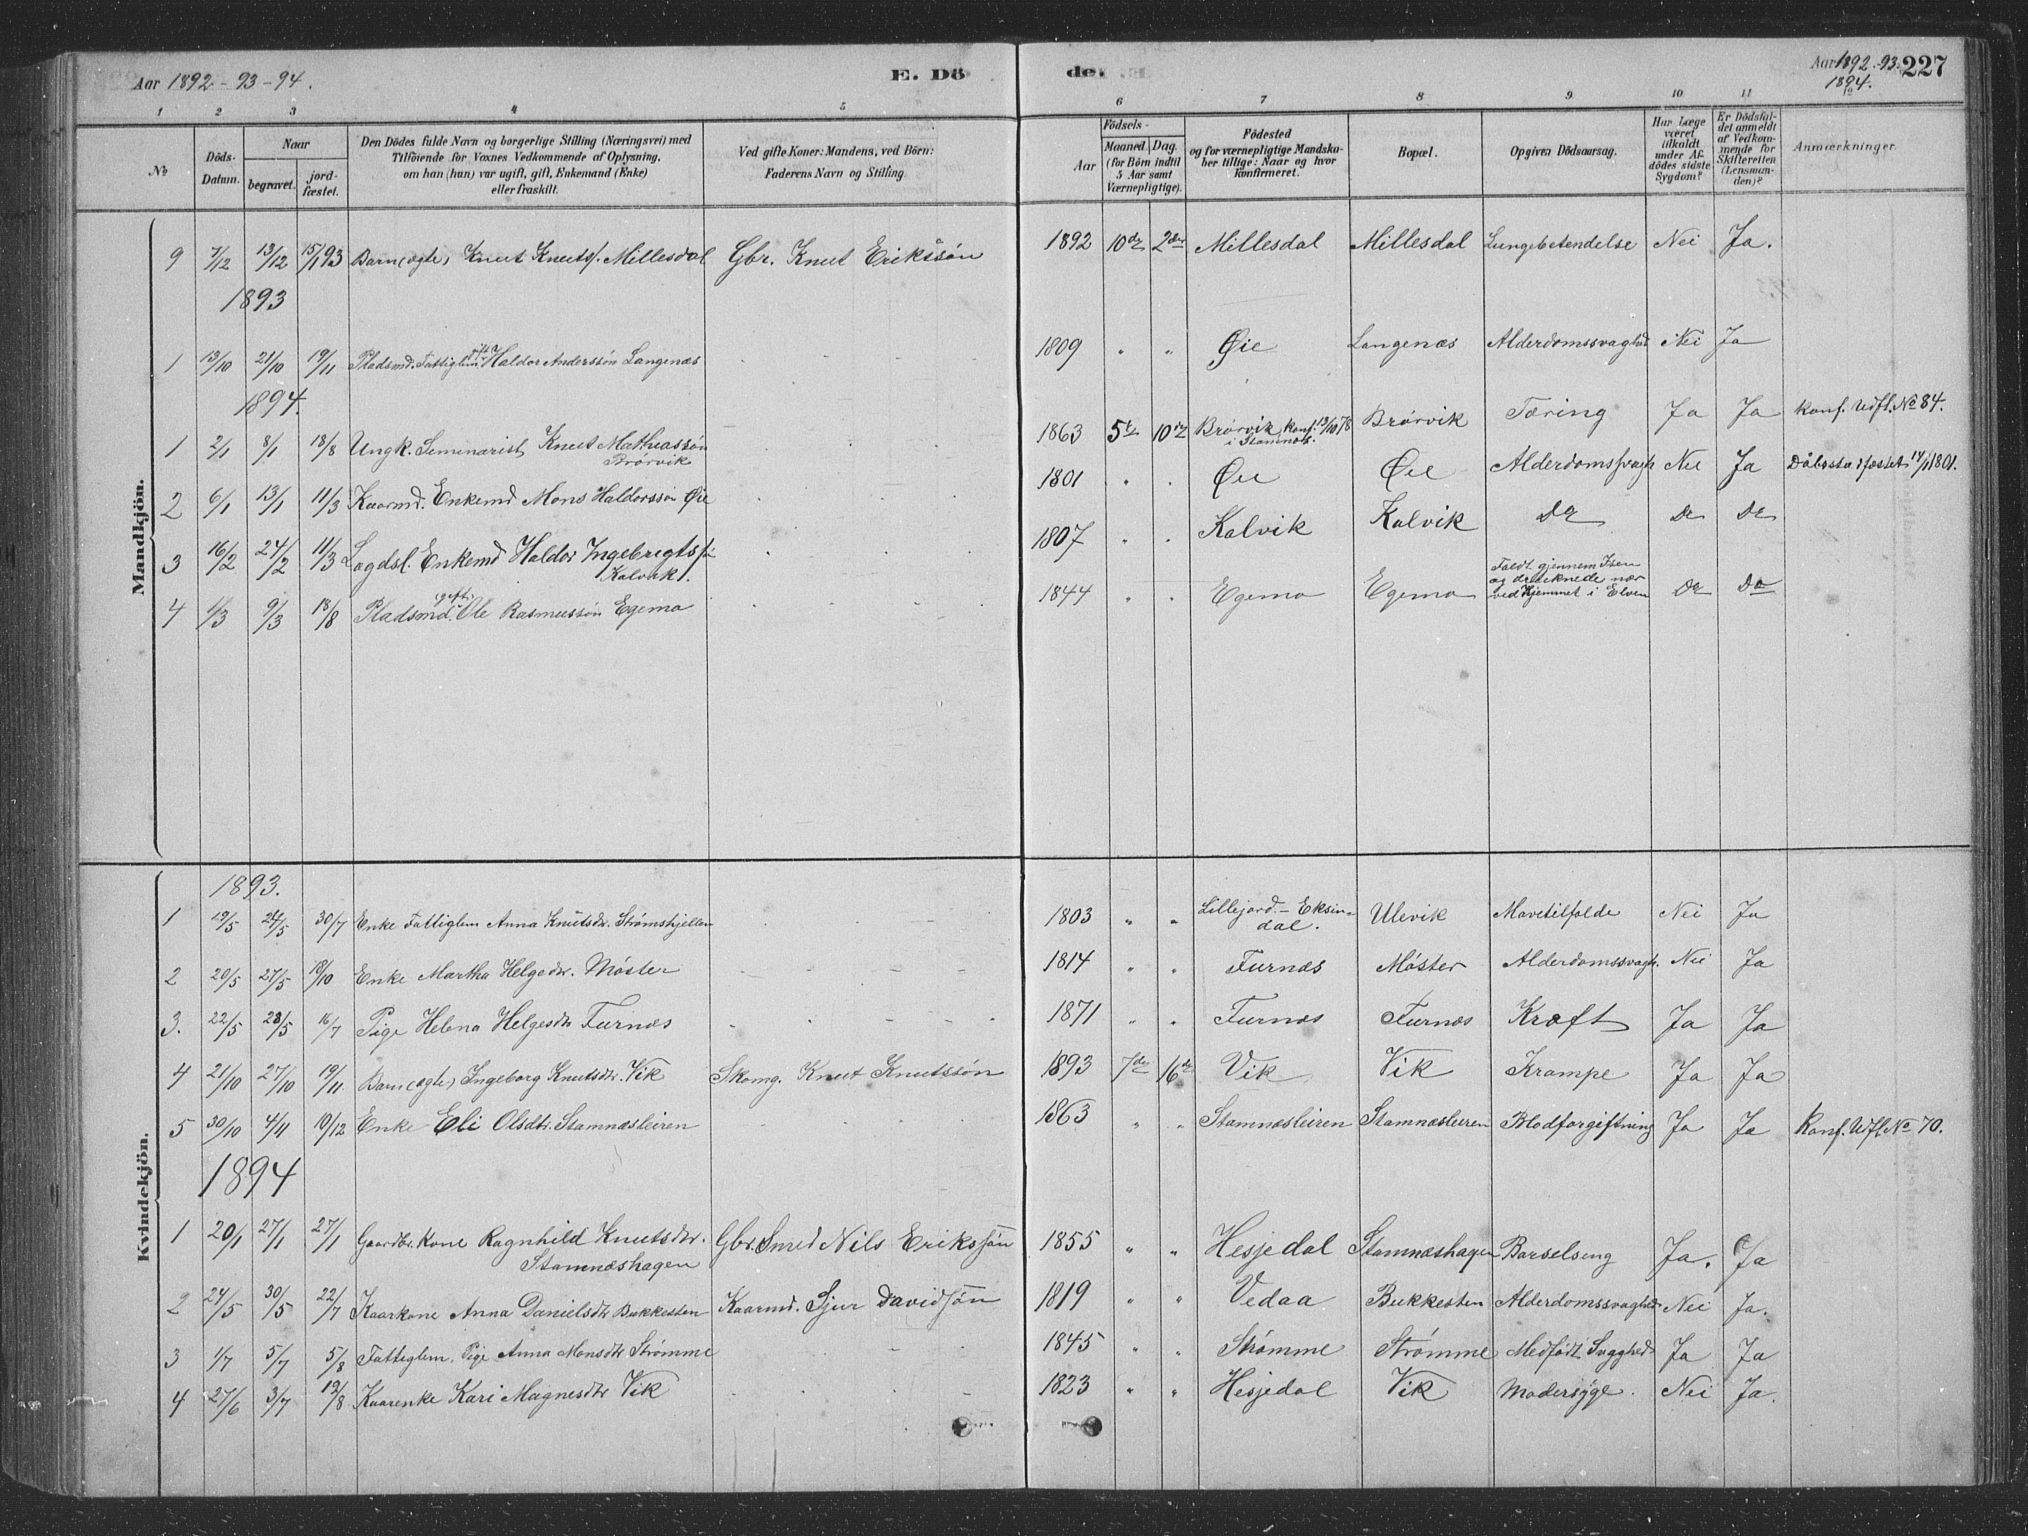 Aar 1892 - 93 - 94.
E. Dö
de.
Aar 1892 - 93.
1894.
227
1 2 3 4 5 6 7 8 9 10 11 12
No
Döds-Datum.
Naar
begravet.
jord-fæstet.
Den Dödes fulde Navn og borgerlige Stilling (Næringsvei) med
Tilföiende for Voxnes Vedkommende af Oplysning,
om han (hun) var ugift, gift, Enkemand (Enke)
eller fraskilt.
Ved gifte Koner: Mandens, ved Börn:
Faderens Navn og Stilling.
Födsels-
Aar
Maaned. Dag.
(for Börn indtil
5 Aar samt
Værnepligtige).
Födested
og for værnepligtige Mandska-
ber tillige: Naar og hvor
konfirmeret.
Bopæl.
Opgiven Dödsaarsag.
Har Læge
været
tilkaldt
under Af-
dödes sidste
Sygdom?
Er Dödsfal-
det anmeldt
af Vedkom-
mende for
Skifteretten
(Lensman-
den)?
Anmærkninger.
Mandkjön.
9 7/12 13/12 15/1 93 Barn (ægte) Knut Knuts. Millesdal Gbr. Knut Erikssön 1892 10de 2den Millesdal Millesdal Lungebetendelse Nei Ja.
1893
1 13/10 21/10 19/11 Pladsmd. Fattiglem gift Haldor Anderssön Langenæs 1809 " " Øie Langenæs Alderdomssvaghed Nei Ja
1894.
1 2/1 8/1 18/8 Ungk. Seminarist Knut Mathiassön
Brörvik 1863 5te 10de Brörvik konf. 13/10 78
i Stamnæs. Brörvik Tæring Ja Ja Konf. Udfl. No 84.
2 6/1 13/1 11/3 Kaarmd. Enkemd Mons Haldorssön Øie 1801 " . Øie Øie Alderdomssvagh Nei Ja Dåbsstadfæstet 14/11 1801.
3 16/2 24/2 11/3 Lægdsl. Enkemd Haldor Ingebrigtss.
Kalvik. 1807 . . Kalvik Kalvik Do Do Do
4 1/3 9/3 18/8 Pladsmd. gift Ole Rasmussön Egemo 1844 " . Egemo Egemo Faldt gjennem Isen
og druknede nær
ved Hjemmet i Elven Do Do
Kvindekjön.
1893.
1 19/5 24/5 30/7 Enke Fattiglem Anna Knutsdr. Strömshjellen 1803 " " Lillejord - Eksin-
dal. Ulevik Mavetilfælde Nei Ja
2 20/5 27/5 18/10 Enke Martha Helgedr. Möster 1814 " " Furnæs Möster Alderdomssvagh. Nei Ja
3. 22/5 28/5 16/7 Pige Helena Helgesdtr Furnæs 1871 " " Furnæs Furnæs Kræft Ja Ja
4 21/10 27/10 19/11 Barn (ægte) Ingeborg Knutsdtr. Vik Skomg. Knut Knutssön 1893 7de 16de Vik Vik Krampe Ja Ja
5 30/10 4/11 10/12 Enke Eli Olsdtr. Stamnæsleiren 1863 " " Stamnæsleiren Stamnæsleiren Blodforgiftning Ja Ja Konf. Udfl. No 70.
1894
1 20/1 27/1 27/1 Gaardbr. Kone Ragnhild Knutsdtr.
Stamnæshagen Gbr. Smed Nils Erikssön 1855 " " Hesjedal Stamnæshagen Barselseng Ja. Ja
2 24/5 30/5 22/7 Kaarkone Anna Danielsdtr Bukkesten Kaarmd. Sjur Davidsön 1819 " " Vedaa Bukkesten Alderdomssvaghed Nei Ja.
3 1/7 5/7 5/8 Fattiglem. Pige Anna Monsdtr Strömme 1845 " " Strömme Strömme Medfødt Svaghed Ja Ja
4 27/6 3/7 19/8 Kaarenke Kari Magnesdtr Vik 1823 " " Hesjedal Vik Modersyge. Nei Ja.